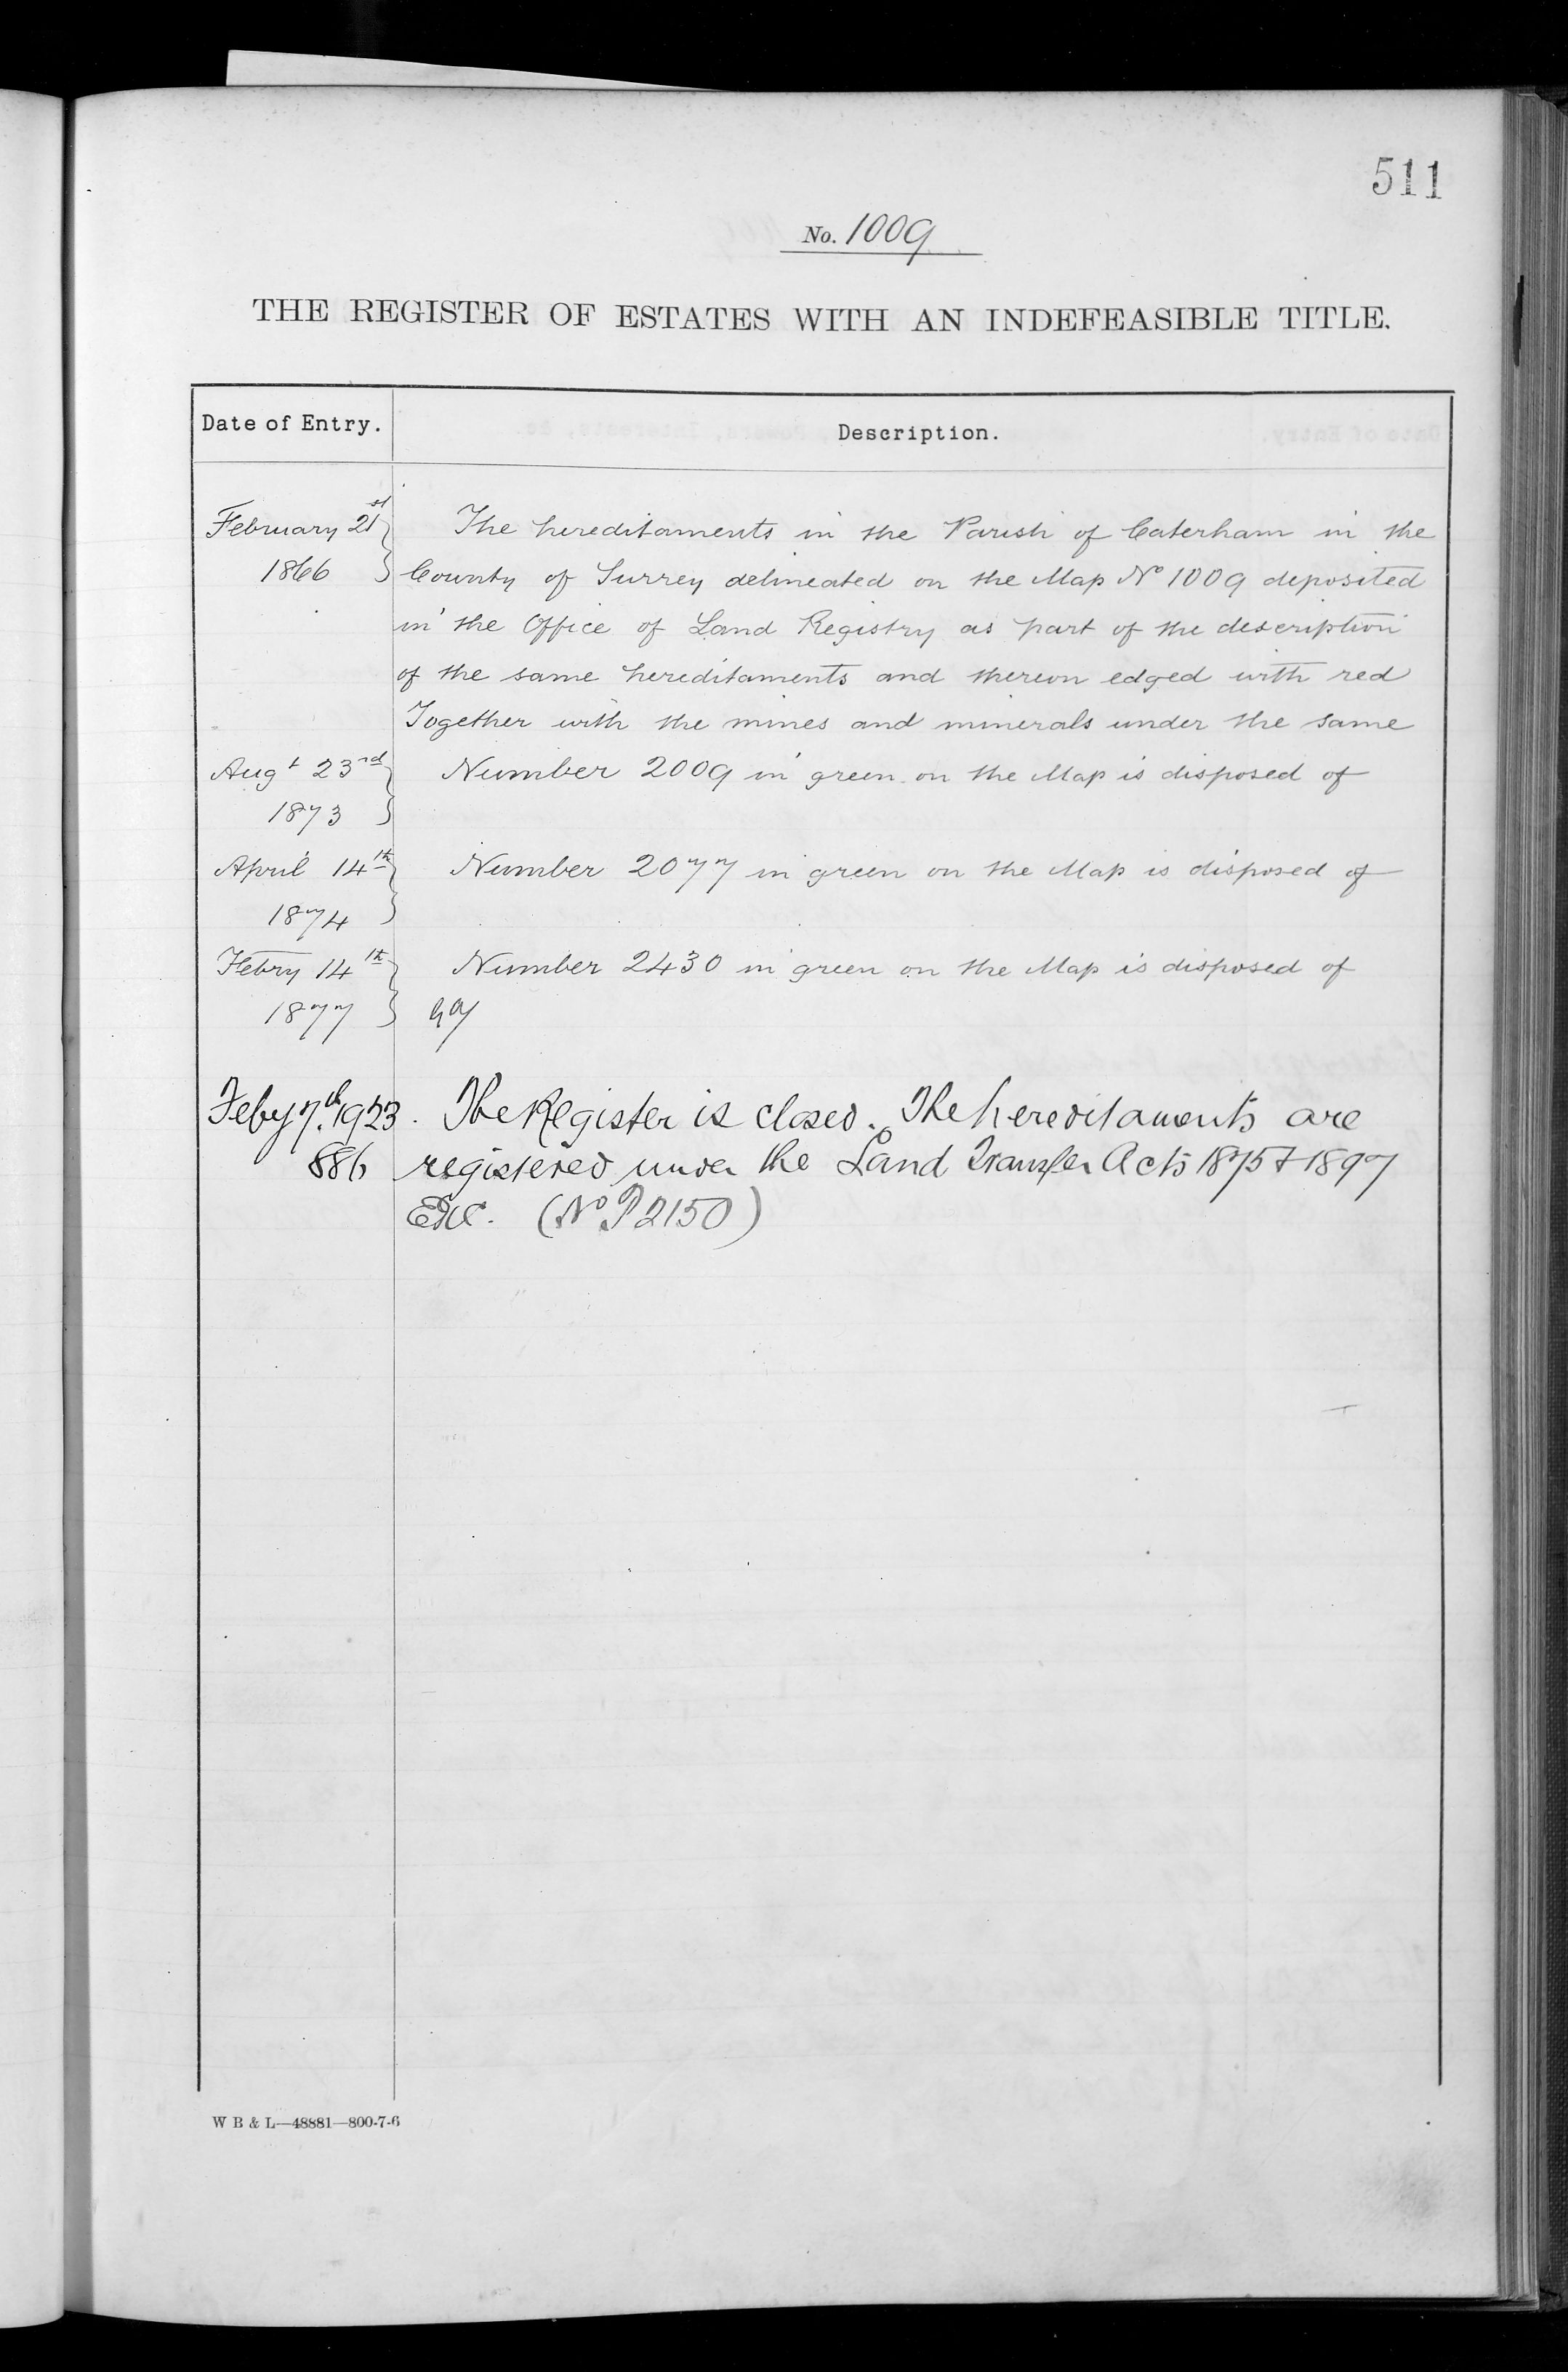 511
No. 1009
THE REGISTER OF ESTATES WITH AN INDEFEASIBLE TITLE.
Date of Entry. Description.
February 21st The hereditaments in the Parish of Caterham in the
1866 County of Surrey delineated on the Map No 1009 deposited
in the Office of Land Registry as part of the description
of the same hereditaments and thereon edged with red
Together with the mines and minerals under the same
Augt 23rd Number 2009 in green on the Map is disposed of
1873
April 14th Number 2077 in green on the Map is disposed of
1874
Febry 14th Number 2430 in green on the Map is disposed of
1877
Feby 7th 1923. The Register is closed. The hereditaments are
886 registered under the Land Transfer Acts 1875 & 1897
(No P2150)
W B & L—48881—800-7-6